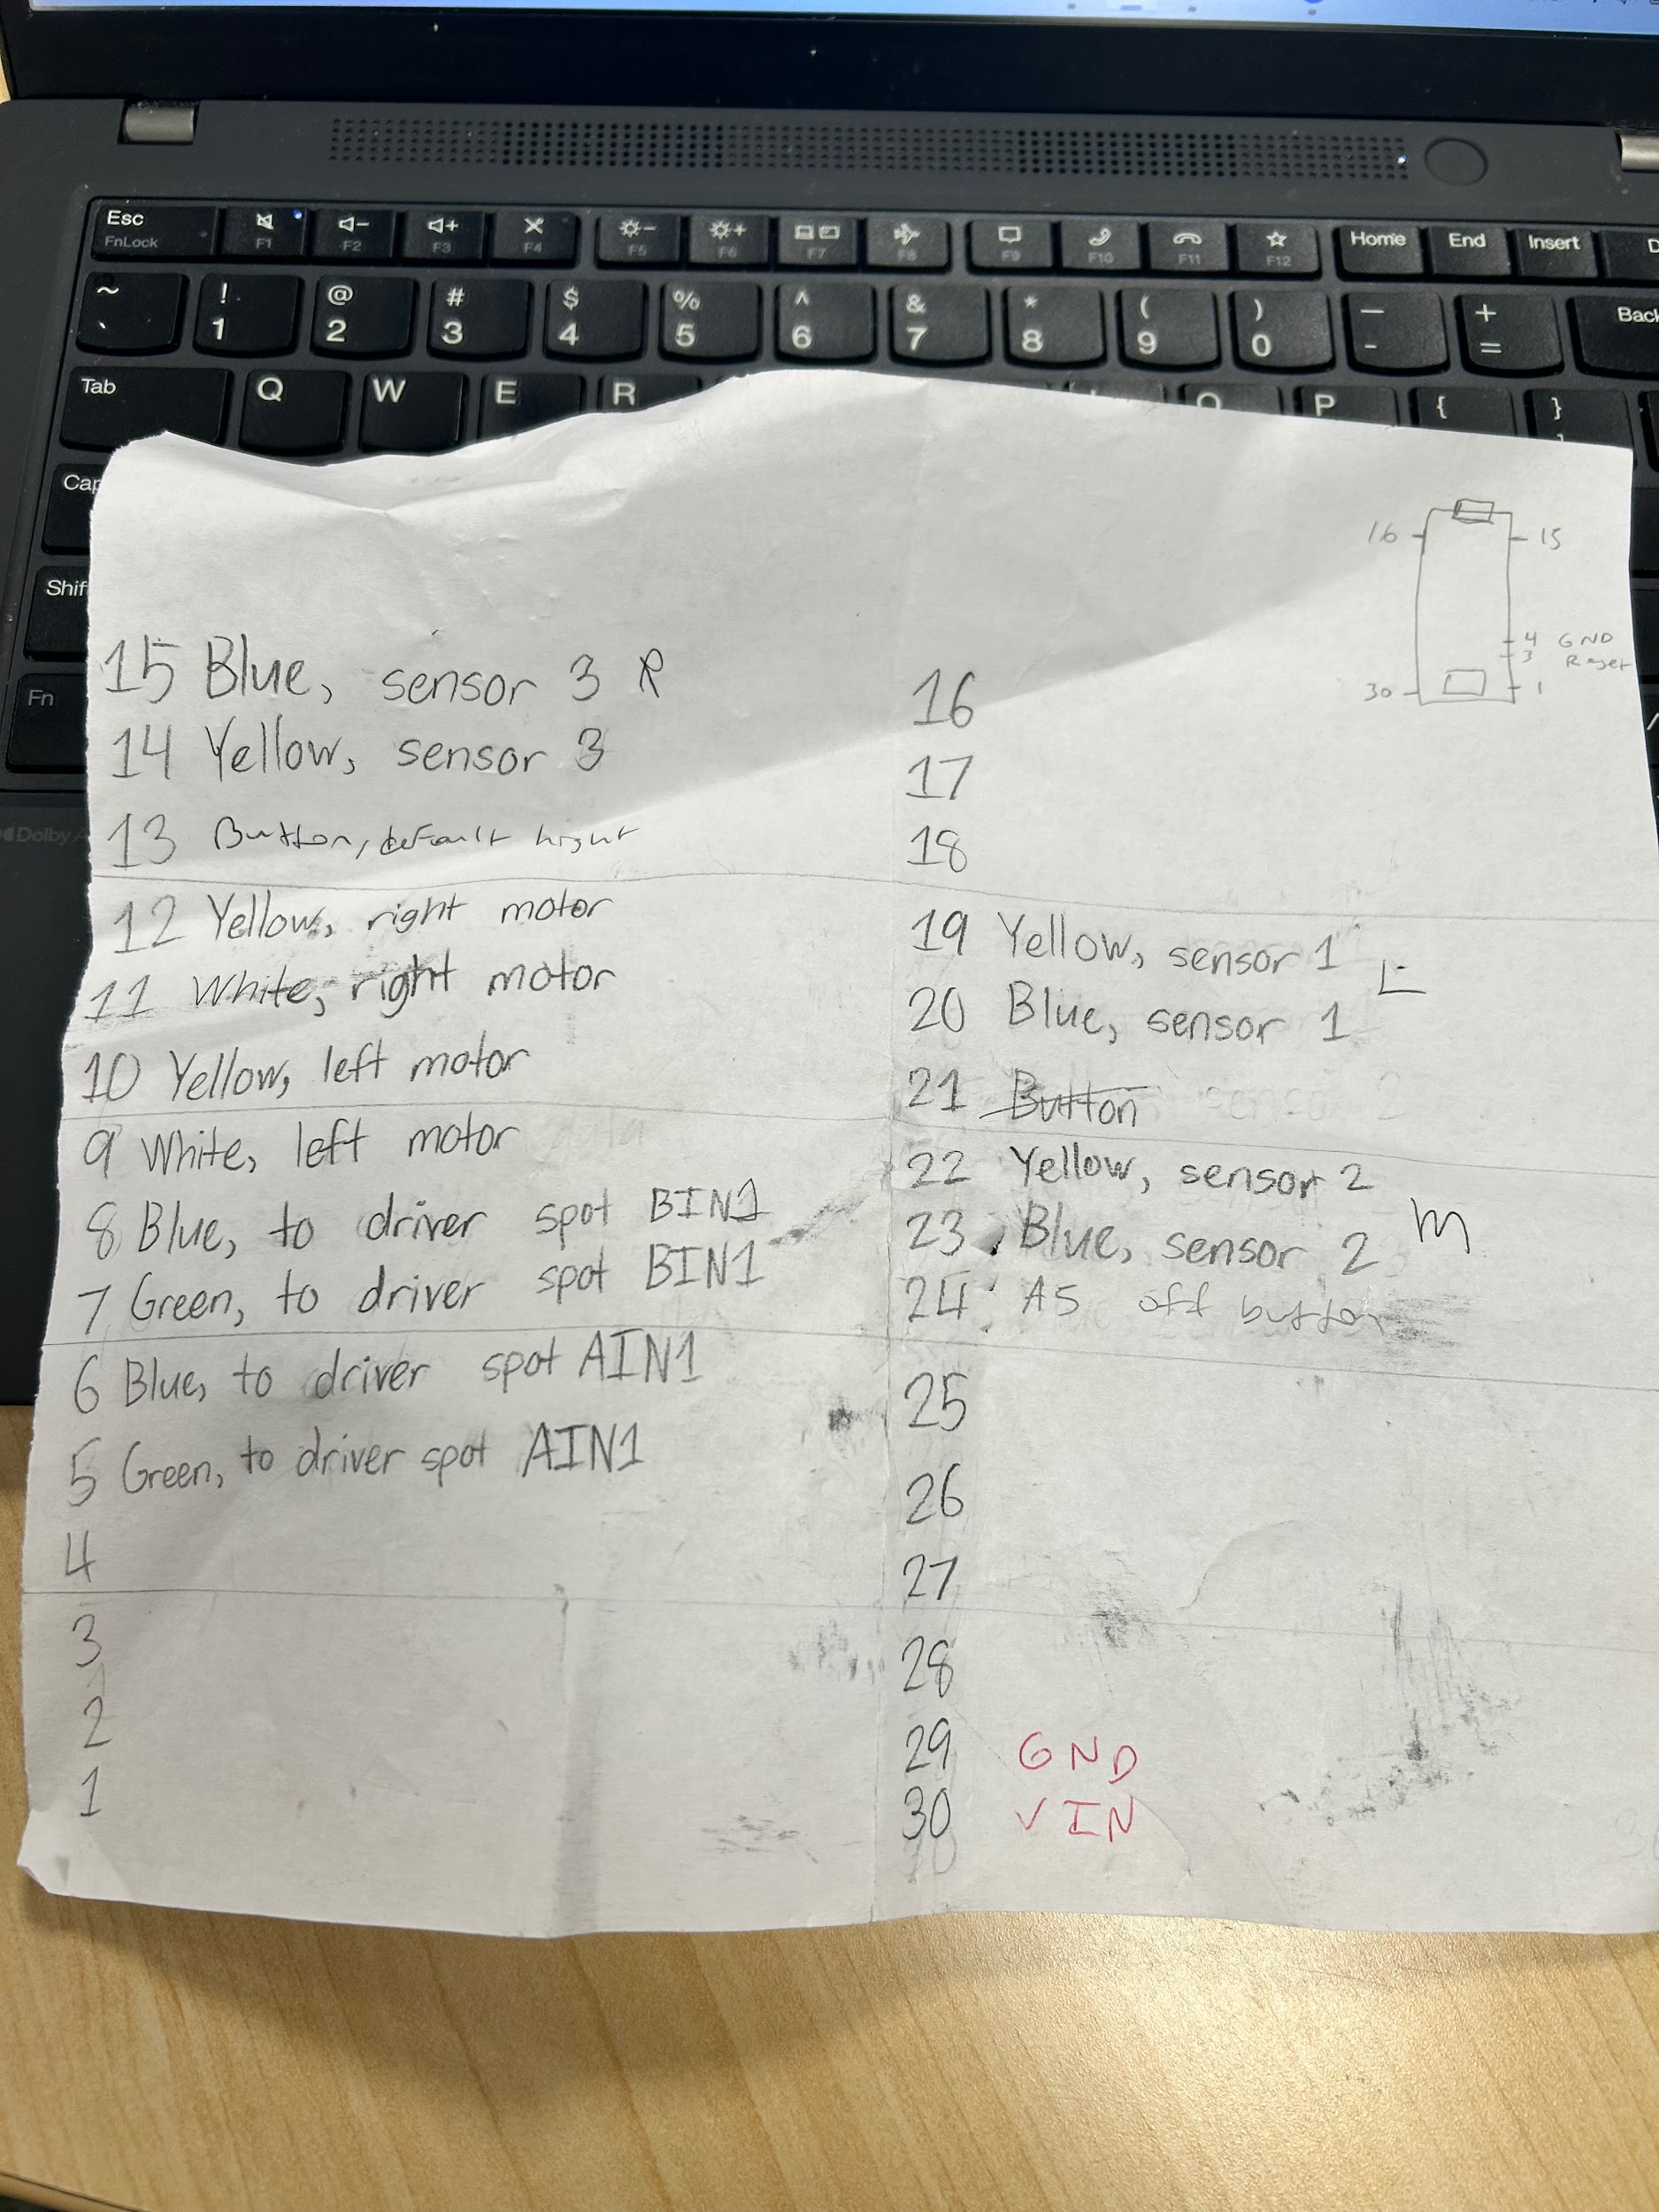 Esc
FnLock
F1
F2
F3
F4
F5
F6
F7
F8
F9
F10
F11
F12
Home
End
Insert
D
~ `
! 1
@ 2
# 3
$ 4
% 5
^ 6
& 7
* 8
( 9
) 0
— -
+ =
Back
Tab
Q
W
E
R
O
P
{
}
Cap
Shif
Fn
Dolby A
16
15
4 GND
3 Reset
30
1
15 Blue, sensor 3 R
14 Yellow, sensor 3
13 Button, default hight
12 Yellow, right motor
11 White, right motor
10 Yellow, left motor
9 White, left motor
8 Blue, to driver spot BIN1
7 Green, to driver spot BIN1
6 Blue, to driver spot AIN1
5 Green, to driver spot AIN1
4
3
2
1
16
17
18
19 Yellow, sensor 1
L
20 Blue, sensor 1
21 Button
22 Yellow, sensor 2
23 Blue, sensor 2 m
24 A5 off button
25
26
27
28
29 GND
30 VIN